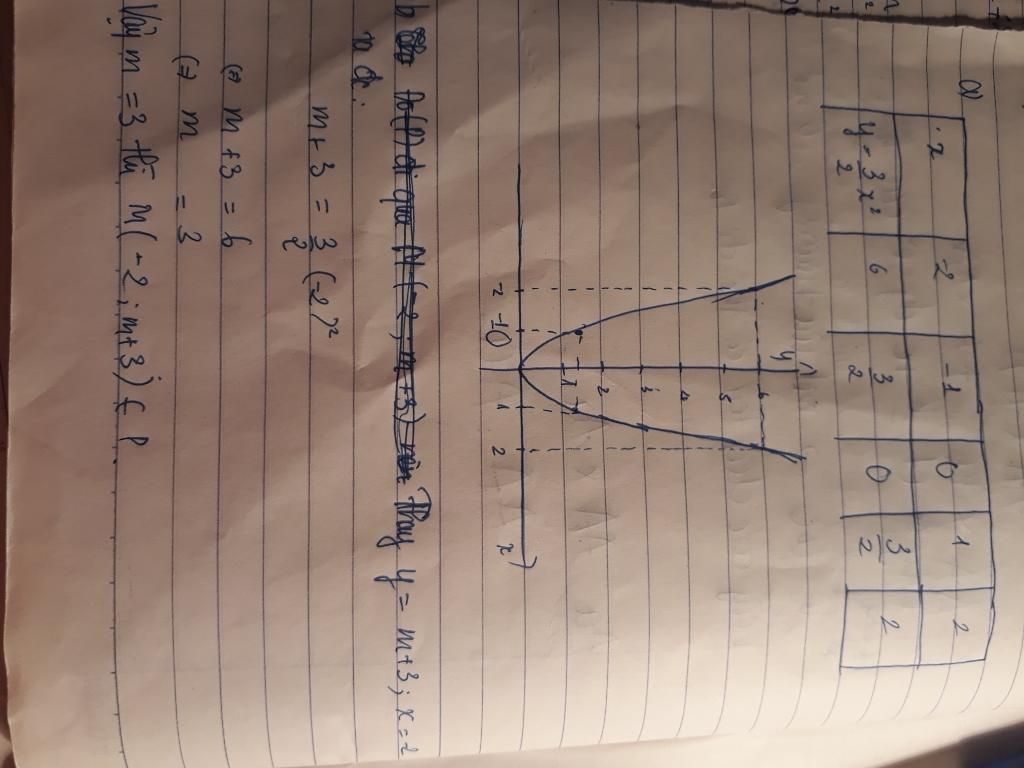 a)
x -2 -1 0 1 2
y = 3/2 x² 6 3/2 0 3/2 2
y
6
5
4
3
2
1
-2 -1 0 1 2 x
b Thay y = m+3; x = 2
m + 3 = 3/2 (-2)²
(=) m + 3 = 6
(=) m = 3
Vậy m = 3 thì M(-2; m+3) € P.